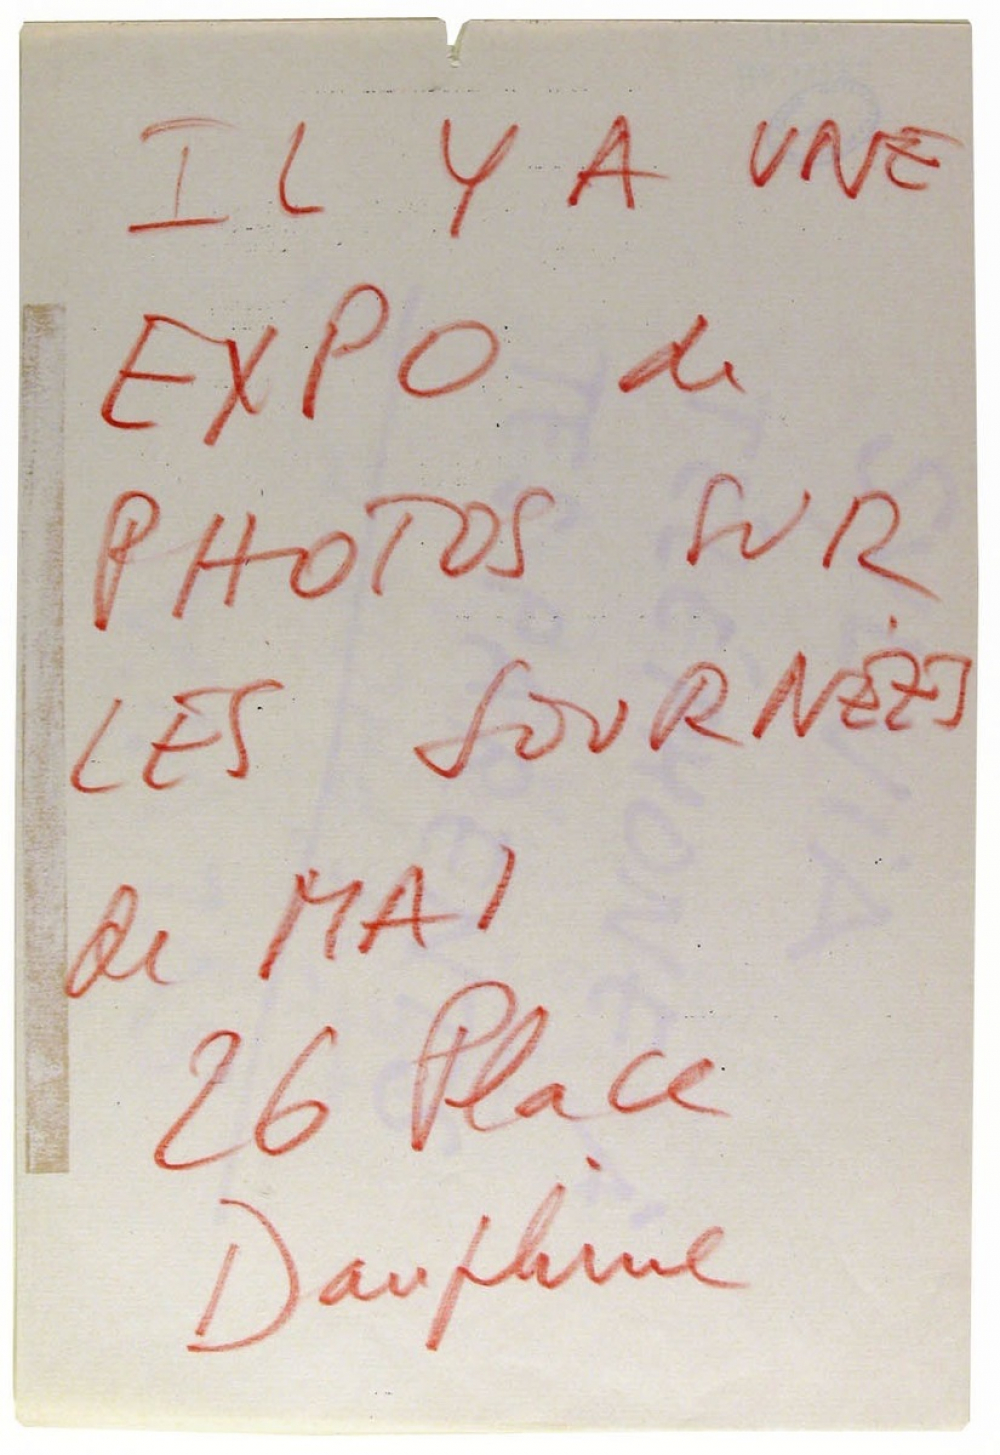 IL Y A UNE
EXPO de
PHOTOS SUR
LES JOURNÉES
de MAI
26 Place
Dauphine